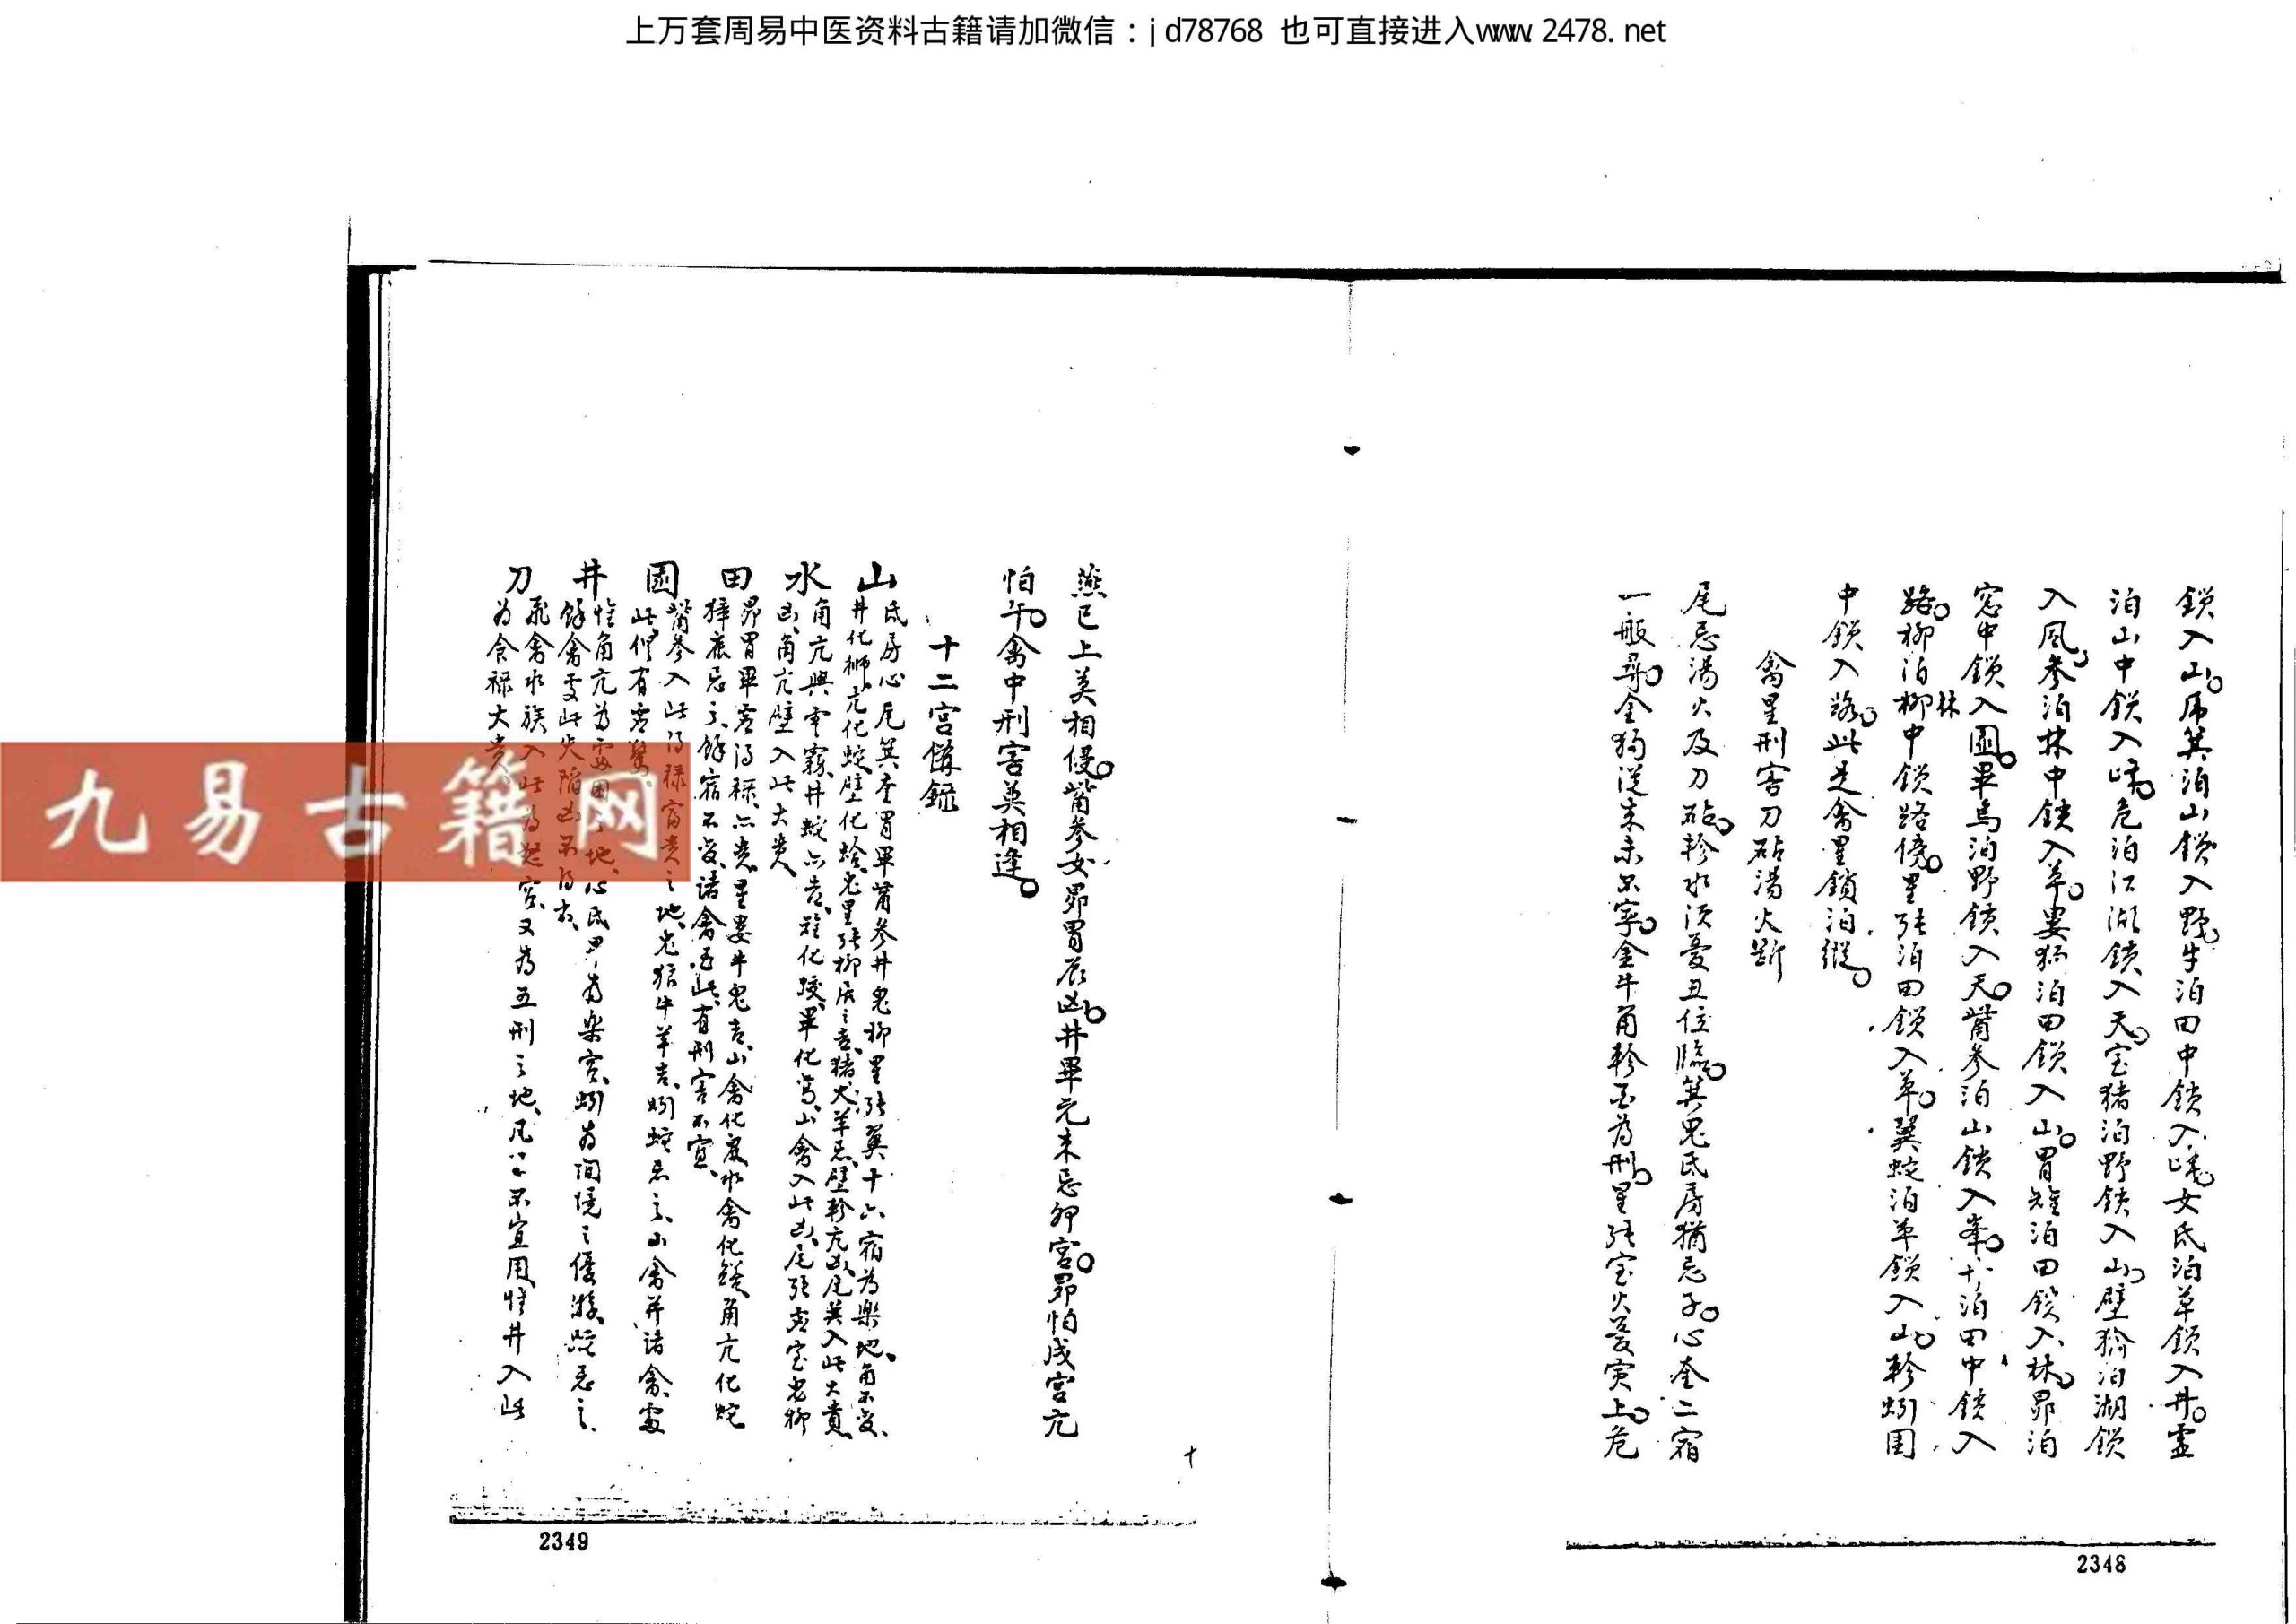 上万套周易中医资料古籍请加微信：jd78768 也可直接进入www.2478.net
鎖入山。尾箕泊山鎖入野。牛泊田中鎖入。女氐泊草鎖入井。虛
泊山中鎖入。危泊江湖鎖入天。室猪泊野鎖入山。壁㺄泊湖鎖
入風。參泊林中鎖入草。婁狗泊田鎖入山。胃雉泊田鎖入林。昴泊
窓中鎖入園。畢烏泊野鎖入天。觜參泊山鎖入峯。泊田中鎖入
路。柳泊柳林中鎖路傍。星張泊田鎖入草。翼蛇泊草鎖入山。軫蚓園
中鎖入路。此是禽星鎖泊縱。
禽星刑害刀砧湯火斷
尾忌湯火及刀砧。軫水須憂丑位臨。箕鬼氐房猶忌子。心奎二宿
一般尋。金狗從來未不寧。金牛角軫酉為刑。星張室火憂寅上。危
2348
燕巳上莫相侵。觜參女昴胃辰凶。井畢元來忌卯宮。昴怕戌宮亢
怕午。禽中刑害莫相逢。
十二宮備錄
山 氐房心尾箕奎胃畢觜參井鬼柳星張翼十六宿為樂地、角不變、
井化獅、亢化蛇、壁化蛤、鬼星張柳居之吉、猪犬羊忌、壁軫亢凶、尾箕入此大貴、
水 角亢與牛、井蛇亦吉、雉化蛟、畢化、山禽入此凶、尾張虛室鬼柳
凶、角亢壁入此大貴、
田 昴胃畢虛得祿亦貴、星婁牛鬼吉、山禽化、水禽化、角亢化蛇
獐鹿忌之、餘宿不變、諸禽至此有刑害不宜、
園 觜參入此得祿富貴之地、鬼狐牛羊吉、蚓蛇忌之、山禽并諸禽、
此有虛驚、
井 惟角亢為之地、心氐為樂宮、蚓為閒境之優游、蛇忌之、
餘禽至此失陷凶不
刀 飛禽水族入此為宮、又為五刑之地、凡不宜用、惟井入此
為食祿大貴、
十
2349
九易古籍网